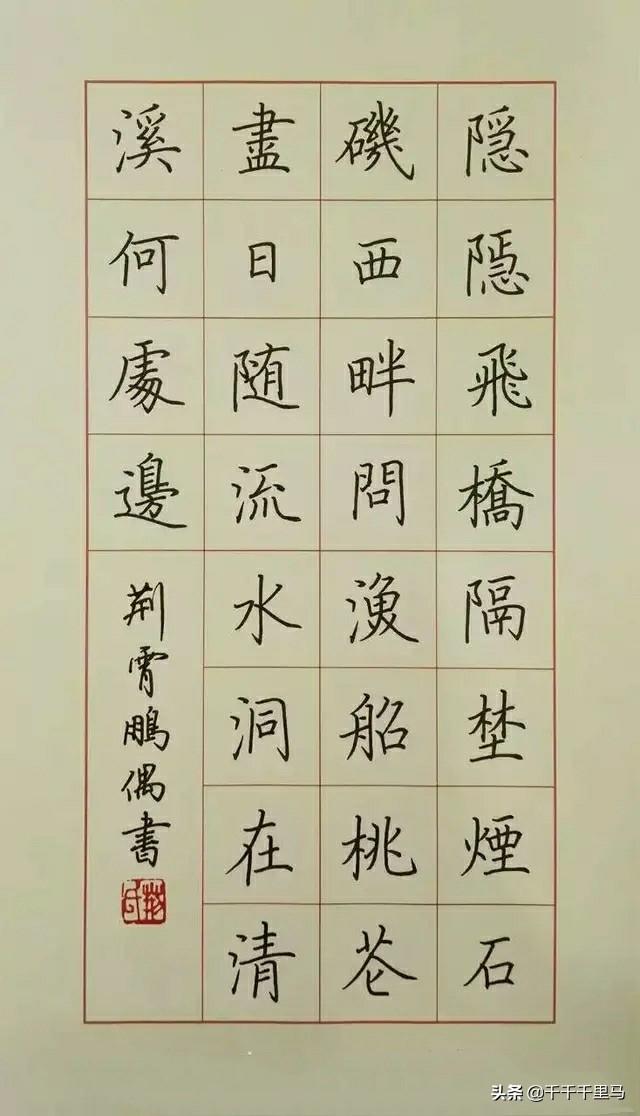 隐隱飛橋隔埜煙石
磯西畔問漁船桃花
盡日随流水洞在清
溪何處邊
荆霄鵬偶書
头条 @千千千里马